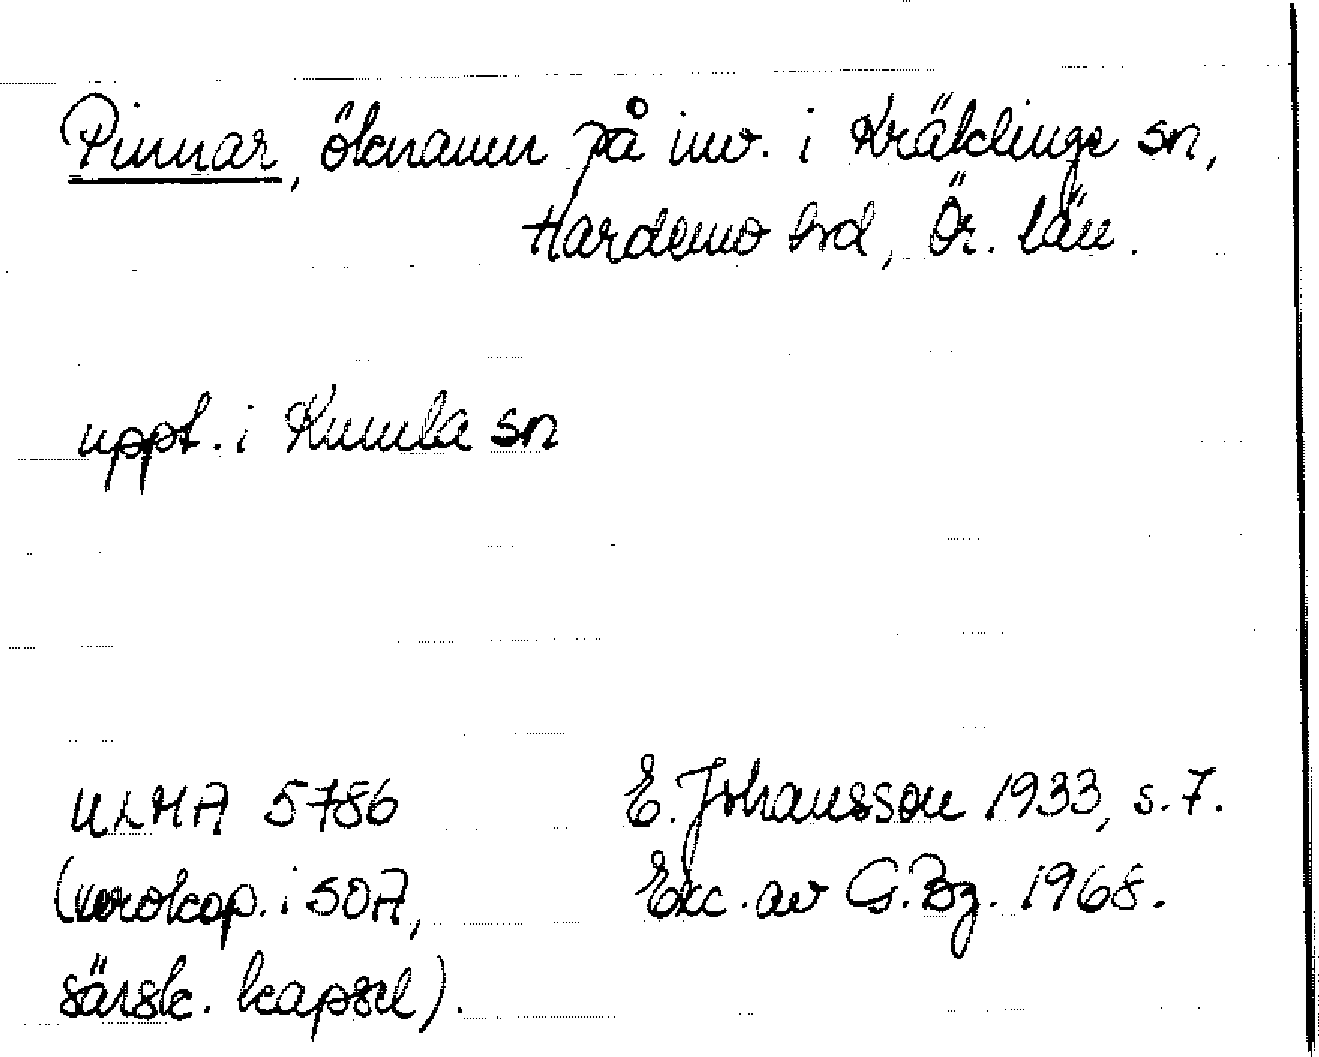 Pinnar, öknamn på inv. i Kräklinge sn,
Hardemo hrd, Ör. län.
uppt. i Kumla sn
ULMA 5786
(xerokop. i SOA,
särsk. kapsel).
E. Johansson 1933, s. 7.
Exc. av G. Bg. 1968.